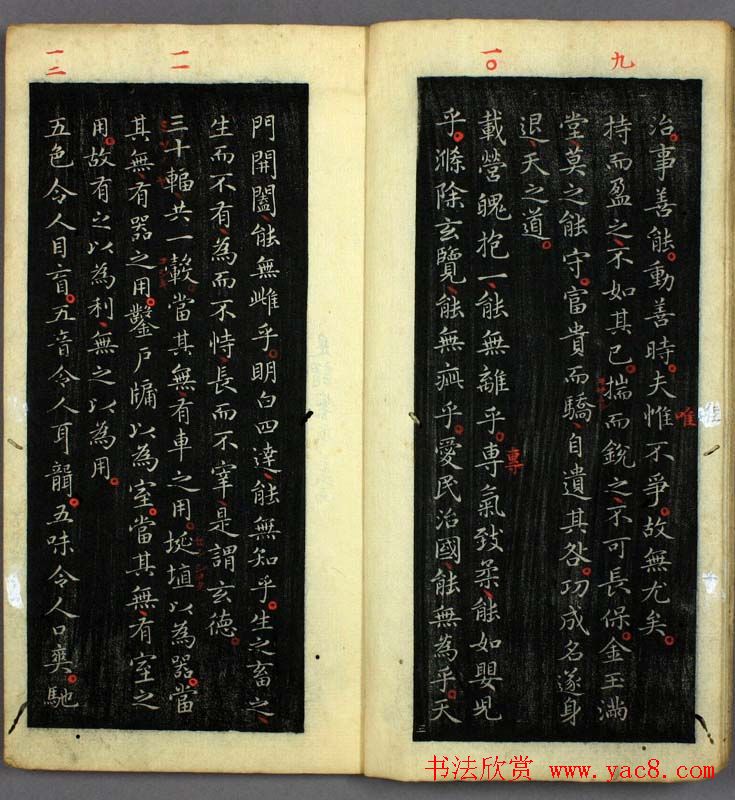 九
一〇
治。事善能。動善時。夫惟不爭。故無尤矣。
唯
持而盈之、不如其已。揣而銳之、不可長保。金玉滿
堂、莫之能守。富貴而驕、自遺其咎。功成名遂身
退、天之道。
載營魄抱一、能無離乎。専氣致柔、能如嬰兒
專
乎。滌除玄覽、能無疵乎。愛民治國、能無為乎。天
一一
一二
門開闔、能無雌乎。明白四達、能無知乎。生之畜之、
生而不有、為而不恃、長而不宰、是謂玄德。
三十輻、共一轂、當其無、有車之用。埏埴以為器、當
其無、有器之用。鑿戶牖以為室。當其無、有室之
用。故有之以為利、無之以為用。
五色令人目盲。五音令人耳聾。五味令人口爽。馳
书法欣赏 www.yac8.com